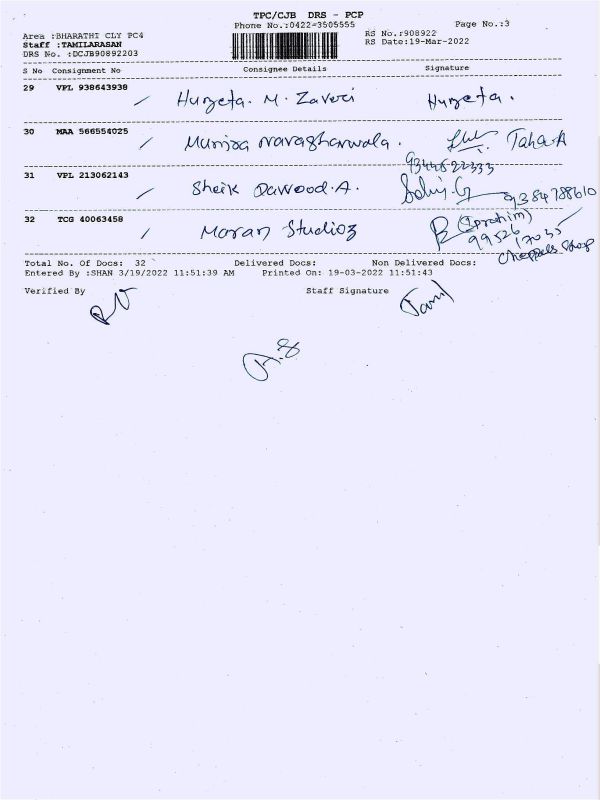 TPC/CJB DRS - PCP
Phone No.:0422-3505555 Page No.:3
Area :BHARATHI CLY PC4 RS No.:908922
Staff :TAMILARASAN RS Date:19-Mar-2022
DRS No. :DCJB90892203
S No Consignment No Consignee Details Signature
29 VPL 938643938 Huzeta. M. Zaveri Huzeta.
30 MAA 566554025 Munira Taha.A
9344622333
31 VPL 213062143 Sheik Dawood.A. 9384788610
32 TCG 40063458 Maran Studioz (Ibrahim)
99526 17035
Chappals Shop
Total No. Of Docs: 32 Delivered Docs: Non Delivered Docs:
Entered By :SHAN 3/19/2022 11:51:39 AM Printed On: 19-03-2022 11:51:43
Verified By Staff Signature
Tamil